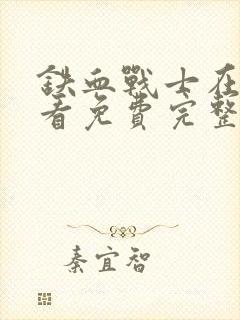 铁血戰士在
看免費完整
秦宜智